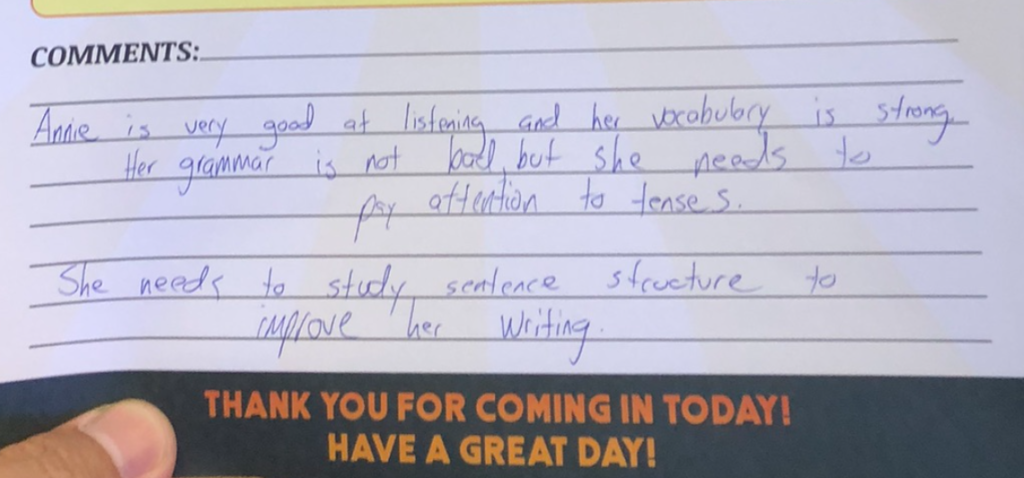 COMMENTS:
Annie is very good at listening and her vocabulary is strong.
Her grammar is not bad, but she needs to
pay attention to tenses.
She needs to study sentence structure to
improve her writing.
THANK YOU FOR COMING IN TODAY!
HAVE A GREAT DAY!